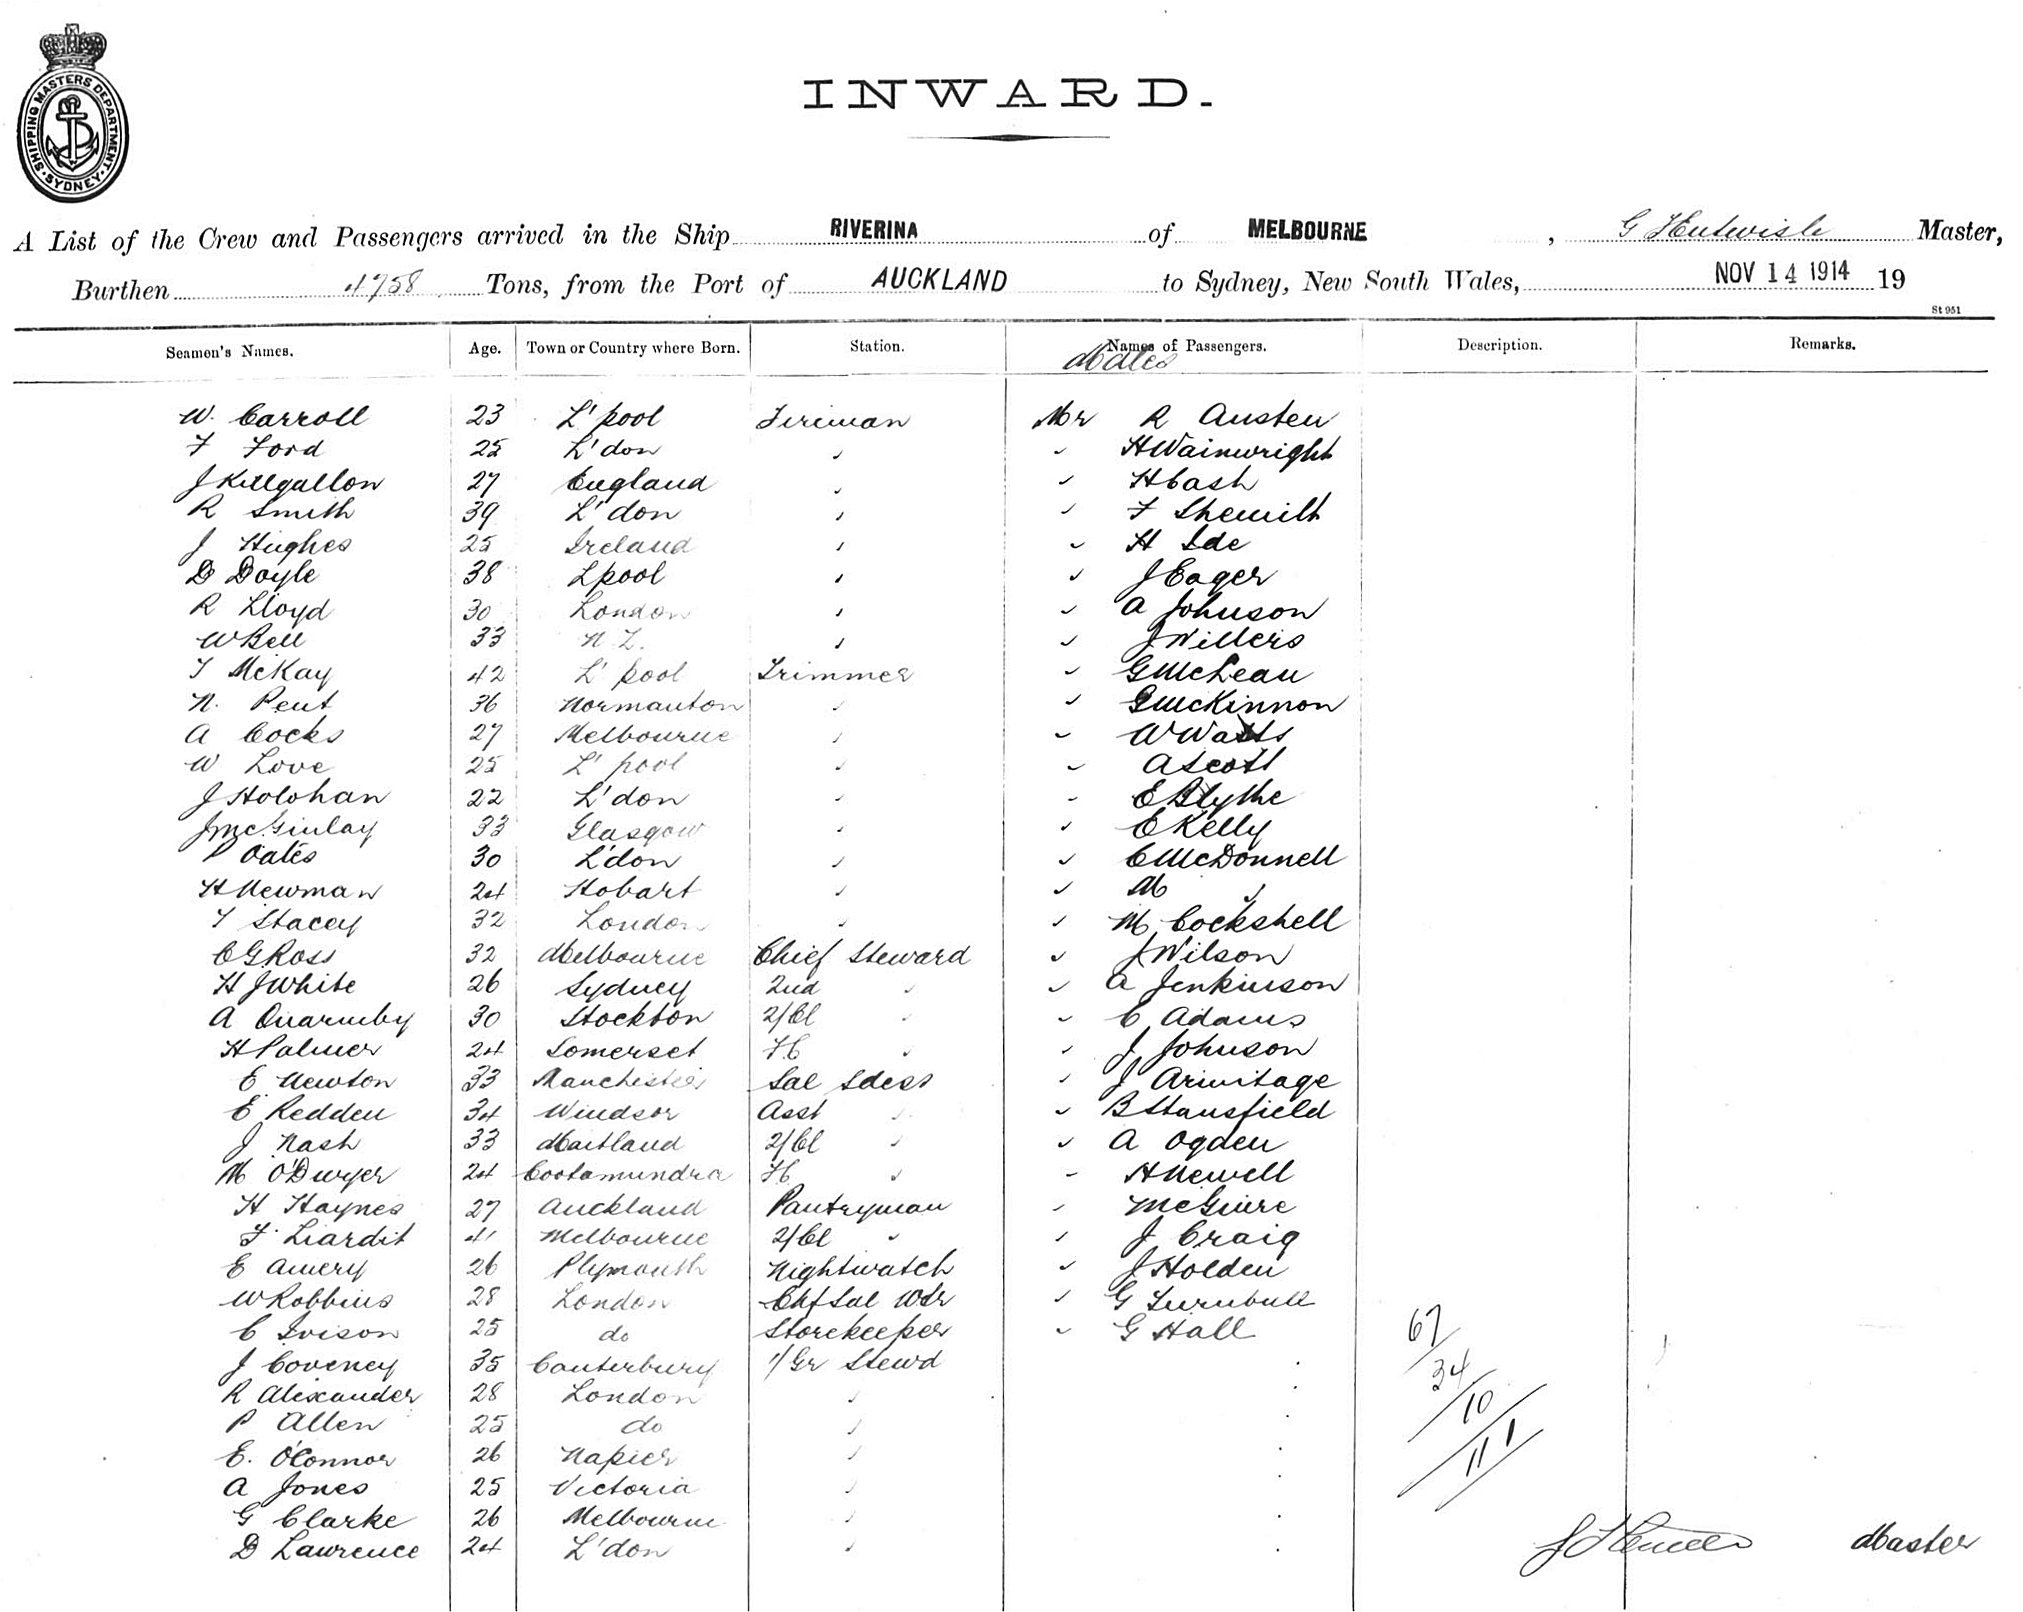 SHIPPING MASTERS DEPARTMENT. SYDNEY.
INWARD.
A List of the Crew and Passengers arrived in the Ship RIVERINA of MELBOURNE, G Master,
Burthen 4758 Tons, from the Port of AUCKLAND to Sydney, New South Wales, NOV 14 1914 19
St 951
Seamen's Names. Age. Town or Country where Born. Station. Names of Passengers. Description. Remarks.
Males
W. Carroll 23 L'pool Fireman Mr R Austen
F Ford 25 L'don " " H Wainwright
J Killgallon 27 England " " H Cash
R Smith 39 L'don " " F Shemilt
J Hughes 25 Ireland " " H Ide
D Doyle 38 Lpool " " J Eager
R Lloyd 30 London " " A Johnson
W Bell 33 N.Z. " " J Willers
T McKay 42 L'pool Trimmer " G McLean
N. Pent 36 Normanton " " G McKinnon
A Cocks 27 Melbourne " " W Watts
W Love 25 L'pool " " A Scott
J Holohan 22 L'don " " E Blythe
J McGinlay 33 Glasgow " " E Kelly
P Oates 30 L'don " " C McDonnell
H Newman 24 Hobart " " M "
T Stacey 32 London " " M Cockshell
C G Ross 32 Melbourne Chief Steward " J Wilson
H J White 26 Sydney 2nd " " A Jenkinson
A Quarmby 30 Stockton 2/Cl " " C Adams
H Palmer 24 Somerset FC " " J Johnson
E Newton 33 Manchester Sal Sdess " J Armitage
E Redden 34 Windsor Asst " " B Stansfield
J Nash 33 Maitland 2/Cl " " A Ogden
M O'Dwyer 24 Cootamundra FC " " H Newell
H Haynes 27 Auckland Pantryman " McGuire
F. Liardit 41 Melbourne 2/Cl " " J Craig
E Amery 26 Plymouth Nightwatch " J Holden
W Robbins 28 London Chf Sal Wtr " G Turnbull
C Ivison 25 do Storekeeper " G Hall 67
J Coveney 35 Canterbury 1/Gr Stewd 34
R Alexander 28 London " 10
P Allen 25 do "
E. O'Connor 26 Napier " 111
A Jones 25 Victoria "
G Clarke 26 Melbourne "
D Lawrence 24 L'don " Master